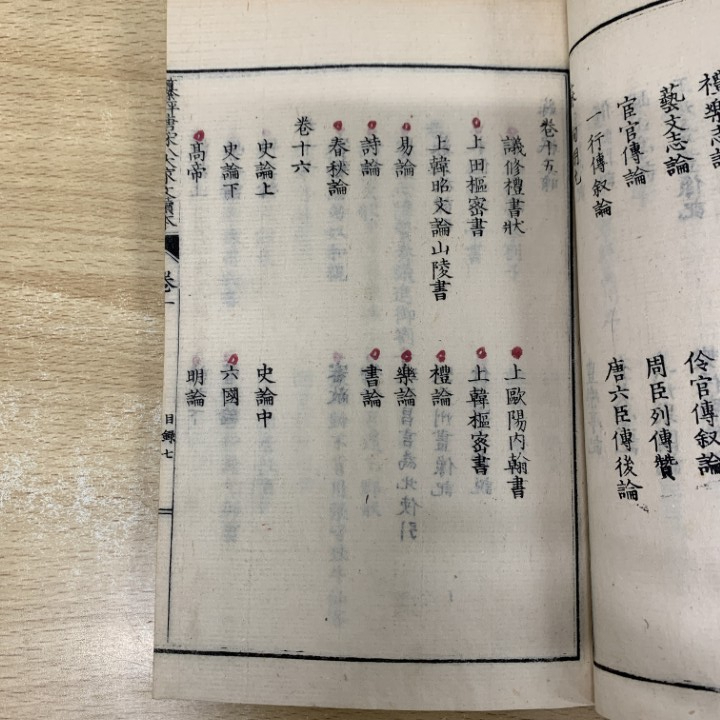 禮樂志論 伶官傳叙論
藝文志論 周臣列傳贊
宦官傳論 唐六臣傳後論
一行傳叙論
卷十五
議修禮書狀 上歐陽內翰書
上田樞密書 上韓樞密書
上韓昭文論山陵書 禮論
易論 樂論
詩論 書論
春秋論
卷十六
史論上 史論中
史論下 六國
高帝 明論
卷一 目錄七